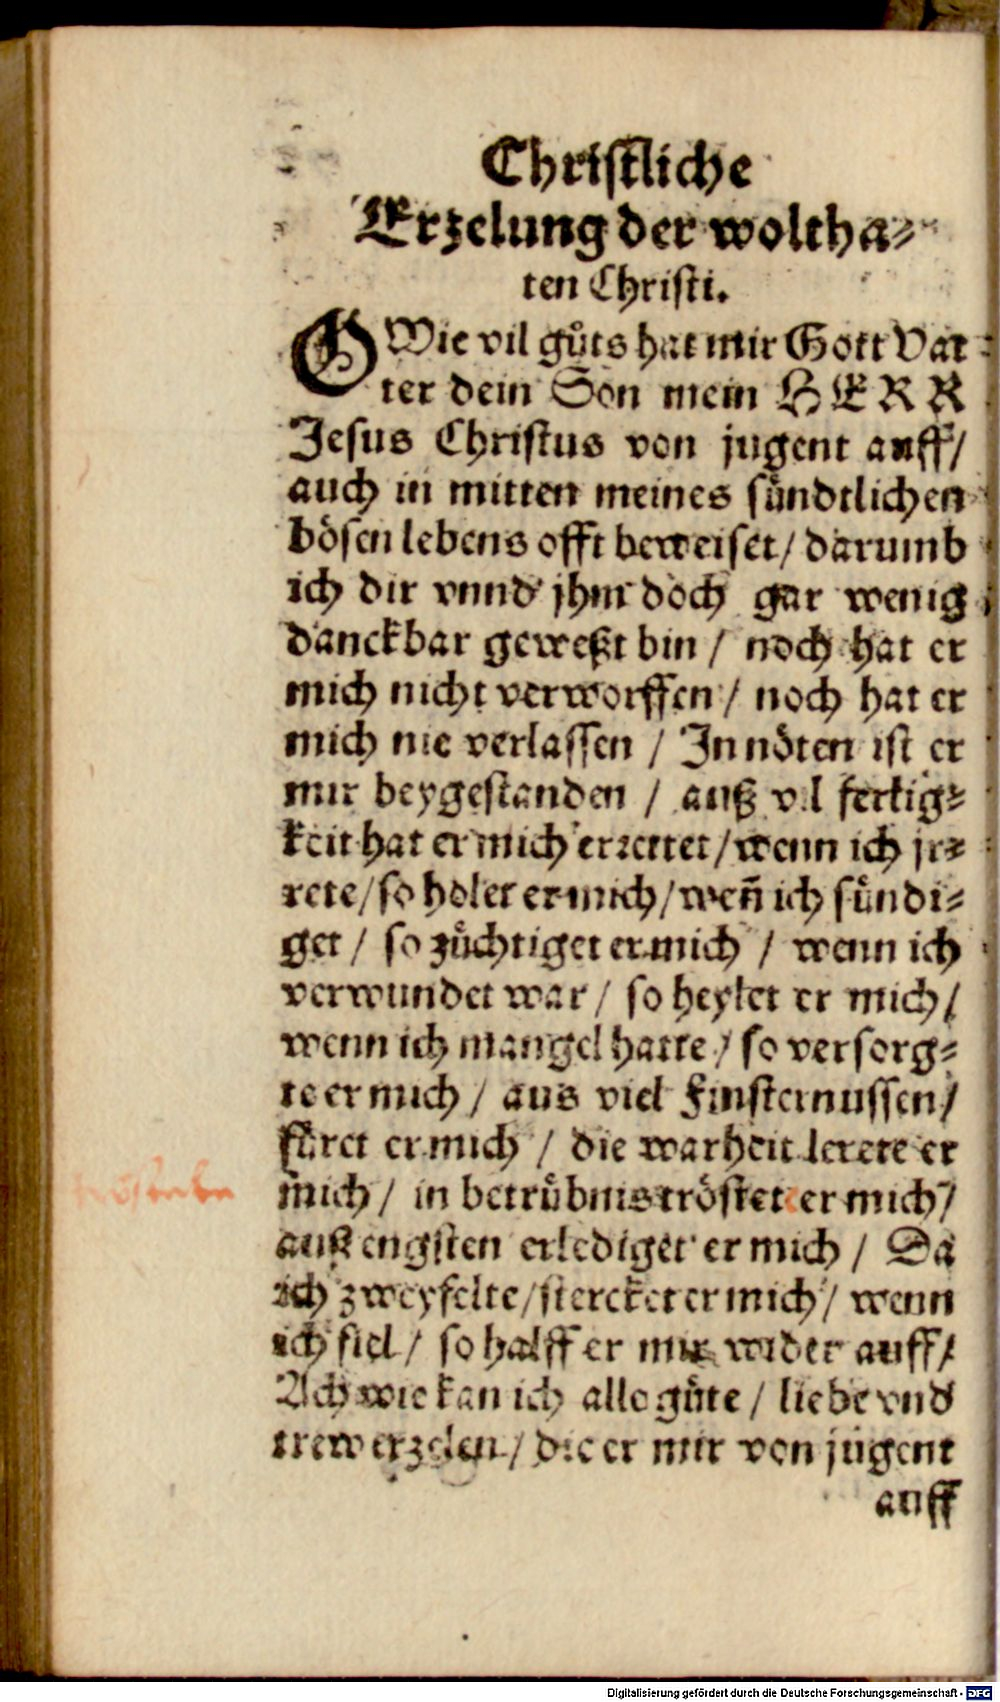 Christliche
Erzelung der woltha⸗
ten Christi.
O Wie vil gůts hat mir Gott Vat
ter dein Son mein HERR
Jesus Christus von jugent auff/
auch in mitten meines sündtlichen
bösen lebens offt beweiset/ darumb
ich dir vnnd jhm doch gar wenig
danckbar geweßt bin / noch hat er
mich nicht verworffen / noch hat er
mich nie verlassen / In nöten ist er
mir beygestanden / auß vil fertig⸗
keit hat er mich errettet/ wenn ich jr⸗
rete/ so holet er mich/ weñ ich sündi⸗
get / so züchtiget er mich / wenn ich
verwundet war / so heylet er mich/
wenn ich mangel hatte / so versorg⸗
te er mich / aus viel Finsternussen/
füret er mich / die warheit lerete er
mich / in betrübnis tröstet er mich/
auß engsten erlediget er mich / Da
ich zweyfelte/ stercket er mich/ wenn
ich fiel / so halff er mir wider auff/
Ach wie kan ich alle güte / liebe vnd
trew erzelen / die er mir von jugent
auff
Digitalisierung gefördert durch die Deutsche Forschungsgemeinschaft - DFG